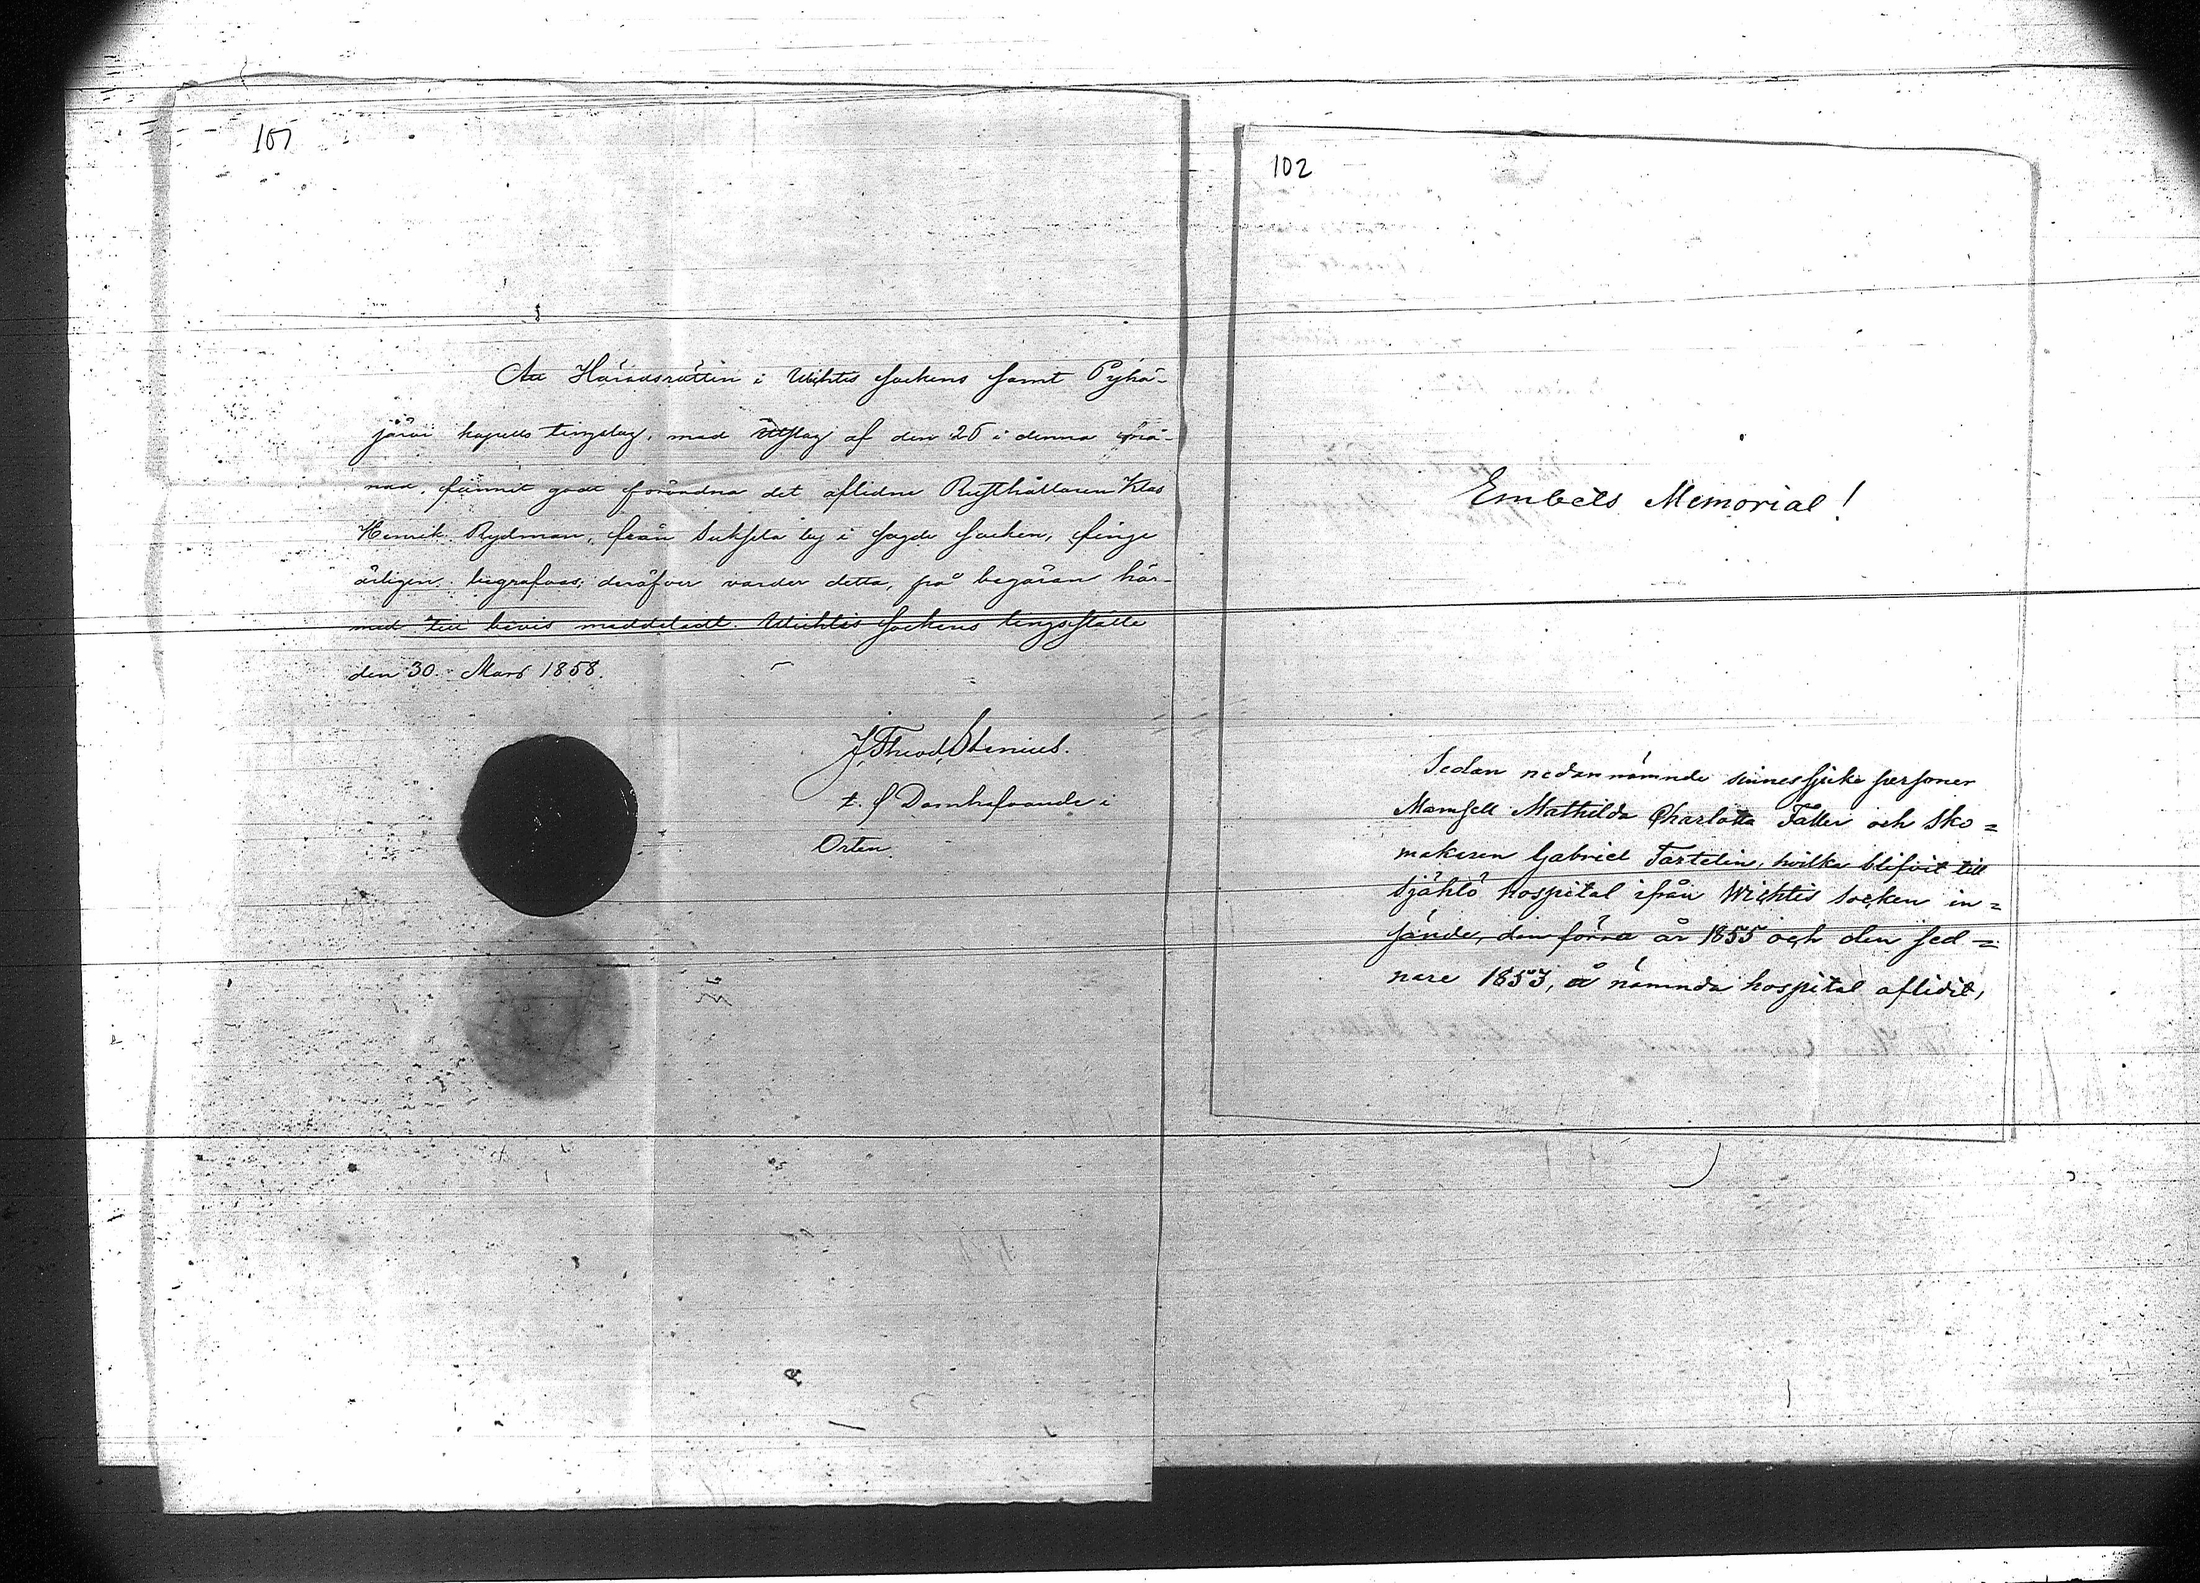 101
Att Häradsrätten i Wichtis Sockens samt Pyhä-
järvi kapells tingslag, med Utslag af den 26 i denna må-
nad, funnit godt förordna det aflidne Rusthållaren Klas
Henrik Rydman, från Suksela by i sagde socken, finge
ärligen begrafvas; deröfver varder detta, på begäran här-
med till bevis meddeladt. Wichtis Sockens tingsställe
den 30. Mars 1858.
J. Theod. Stenius.
t. f. Domhafvande i
Orten.
102
Embets Memorial!
Sedan nedannämnde sinnessjuke personer
Mamsell Mathilda Charlotta Faller och Sko=
makaren Gabriel Tartelin, hvilka blifvit till
Själhö hospital ifrån Wichtis Socken in=
sände, den förra år 1855 och den sed=
nare 1853, å nämnda hospital aflidit,